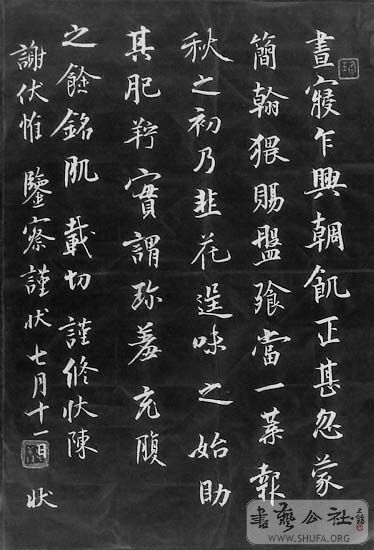 晝寢乍興朝飢正甚忽蒙
簡翰猥賜盤飧當一葉報
秋之初乃韭花逞味之始助
其肥羜實謂珍羞充腹
之餘銘肌載切謹修狀陳
謝伏惟鑒察謹狀七月十一日狀
書藝公社
WWW.SHUFA.ORG